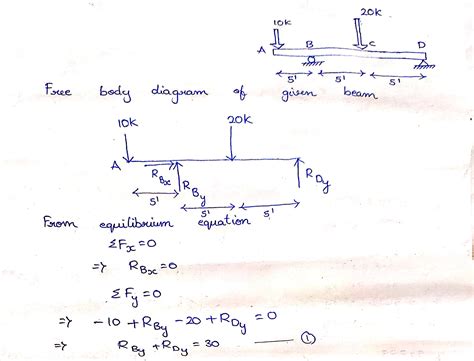 20K
10K
A B C D
5' 5' 5'
Free body diagram of given beam
10K 20K
A R_Bx R_By R_Dy
5'
5' 5'
From equilibrium equation
ΣF_x=0
=> R_Bx=0
ΣF_y=0
=> -10+R_By-20+R_Dy=0
=> R_By+R_Dy=30 —— ①